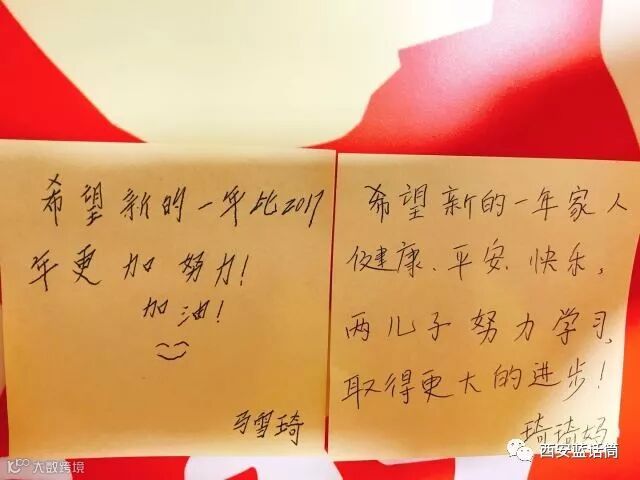 希望新的一年比2017
年更加努力!
加油!
马雪琦
希望新的一年家人
健康、平安、快乐,
两儿子努力学习,
取得更大的进步!
琦琦妈
西安蓝话筒
大数跨境